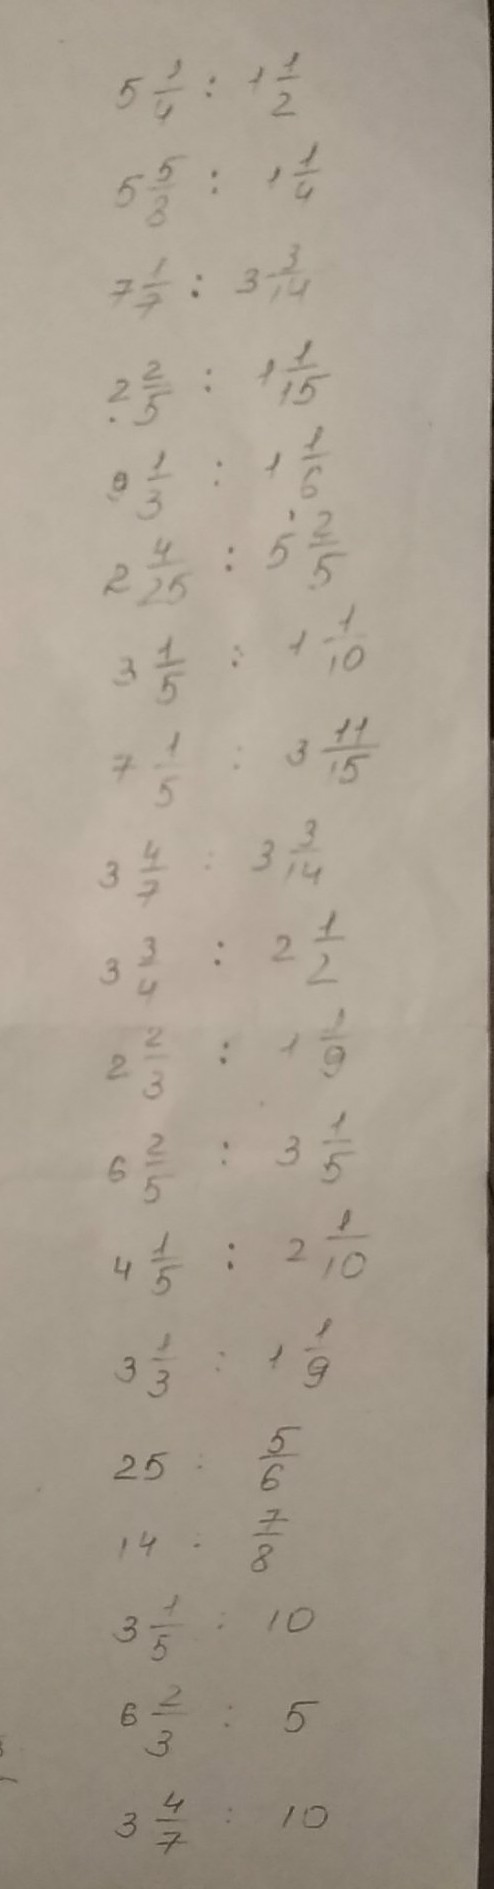 5 1/4 : 1 1/2
5 5/8 : 1 1/4
7 1/7 : 3 3/14
2 2/5 : 1 1/15
9 1/3 : 1 1/6
2 4/25 : 5 2/5
3 1/5 : 1 1/10
7 1/5 : 3 11/15
3 4/7 : 3 3/14
3 3/4 : 2 1/2
2 2/3 : 1 1/9
6 2/5 : 3 1/5
4 1/5 : 2 1/10
3 1/3 : 1 1/9
25 : 5/6
14 : 7/8
3 1/5 : 10
6 2/3 : 5
3 4/7 : 10